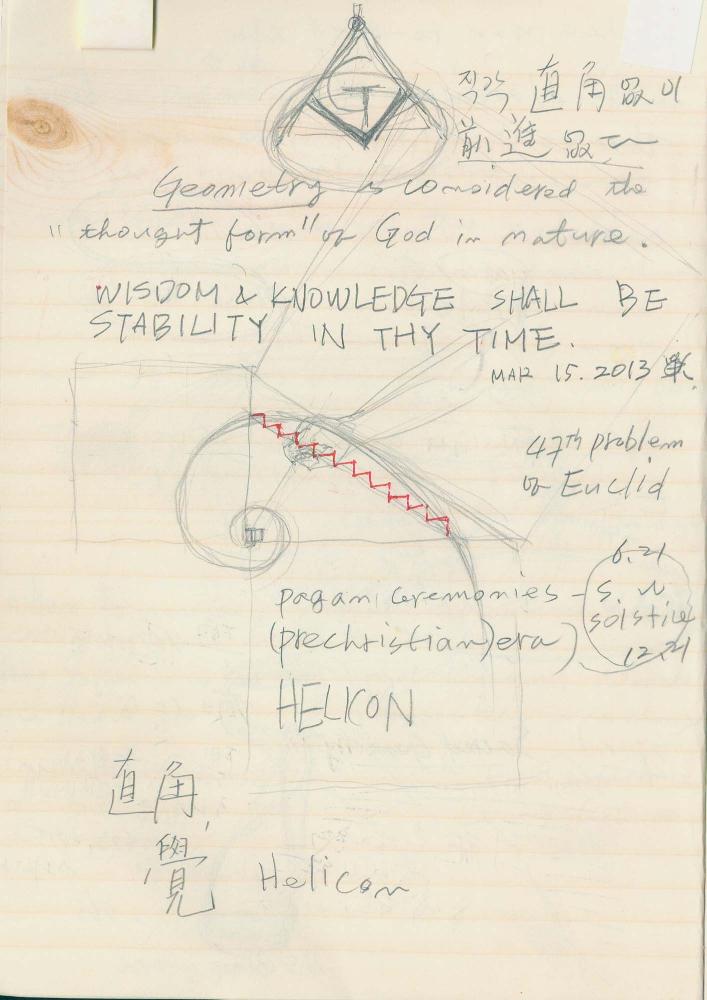 G
직각 直角 없이
前進 없다
Geometry is considered the
"thought form" of God in nature.
WISDOM & KNOWLEDGE SHALL BE
STABILITY IN THY TIME.
MAR 15. 2013
47th problem
of Euclid
6.21
pagan ceremonies - S. W
solstice
(prechristian) era)
12.21
HELICON
直角,
覺 Helicon